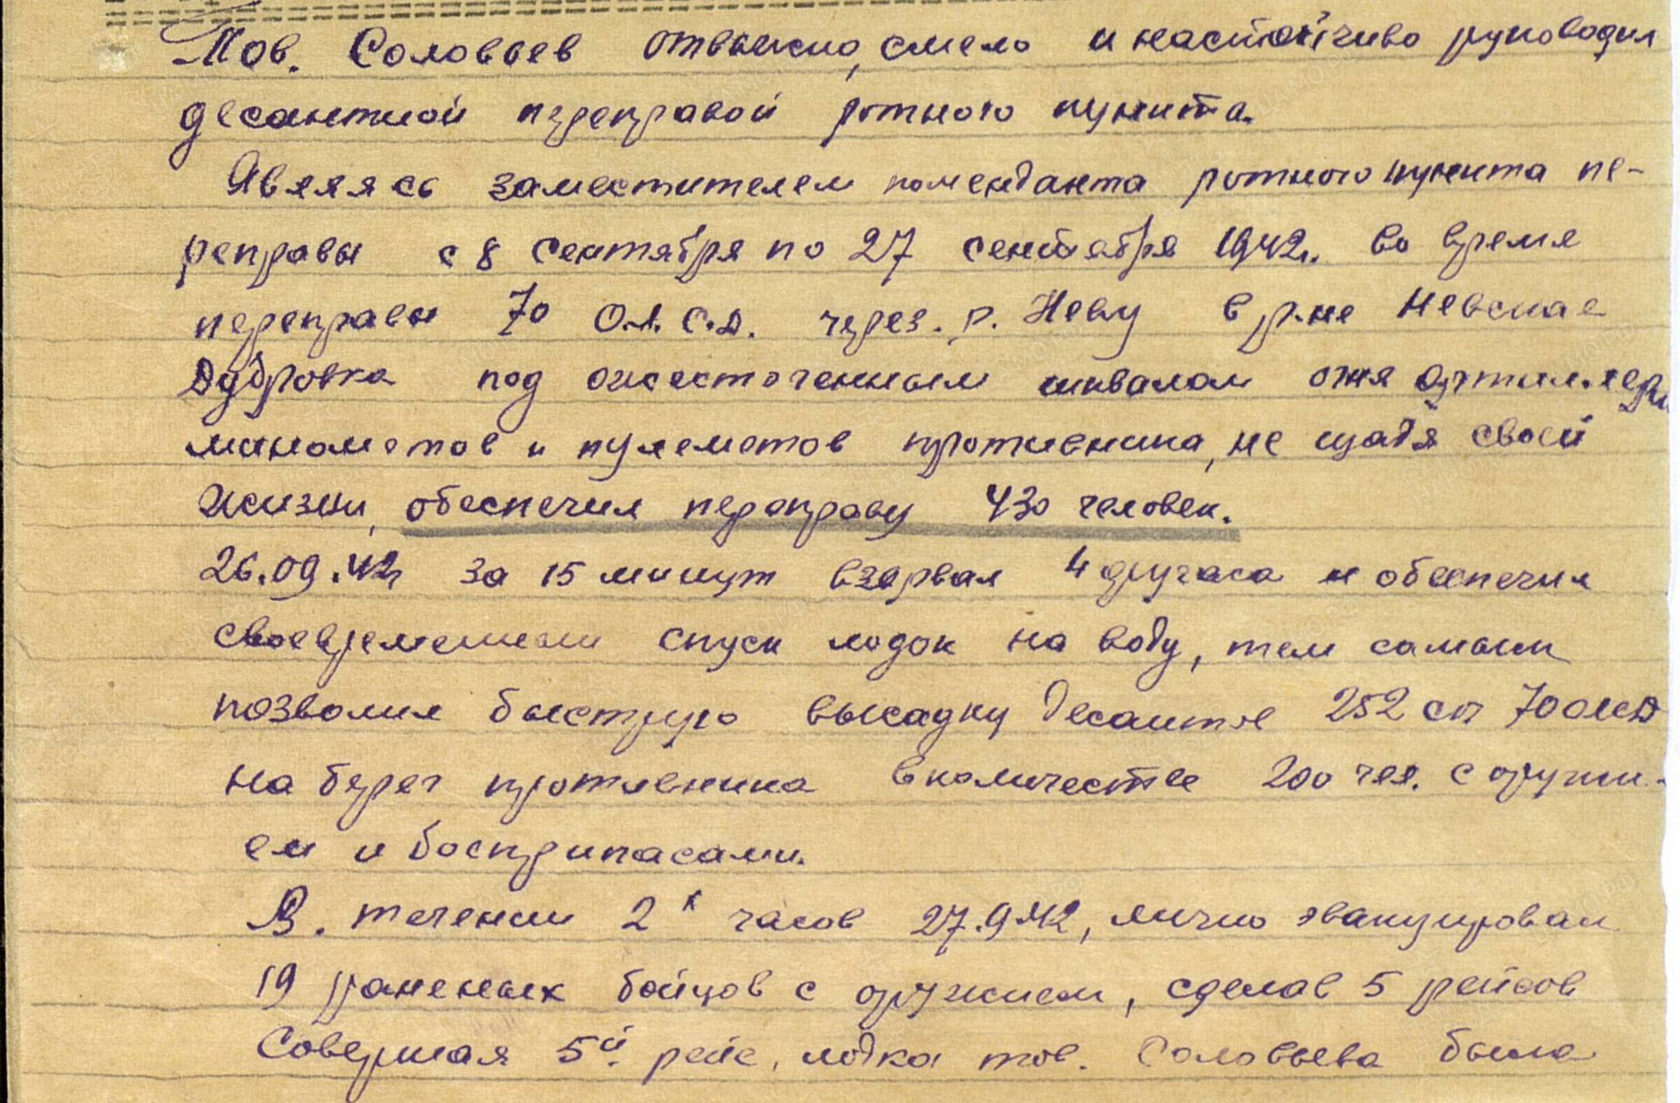 Тов. Соловьев отважно, смело и настойчиво руководил
десантной переправой ротного пункта.
Являясь заместителем коменданта ротного пункта пе-
реправы с 8 сентября по 27 сентября 1942г. во время
переправы 70 О.Л.С.Д. через р. Неву в р-не Невская
Дубровка под ожесточенным шквалом огня артиллери
минометов и пулеметов противника, не щадя своей
жизни, обеспечил переправу 430 человек.
26.09.42г за 15 минут взорвал 4 фугаса и обеспечил
своевременный спуск лодок на воду, тем самым
позволил быструю высадку десантов 252 сп 70
на берег противника в количестве 200 чел. с оружи-
ем и боеприпасами.
В течении 2х часов 27.9.42, лично эвакуировал
19 раненых бойцов с оружием, сделав 5 рейсов
Совершая 5й рейс, лодка тов. Соловьева была